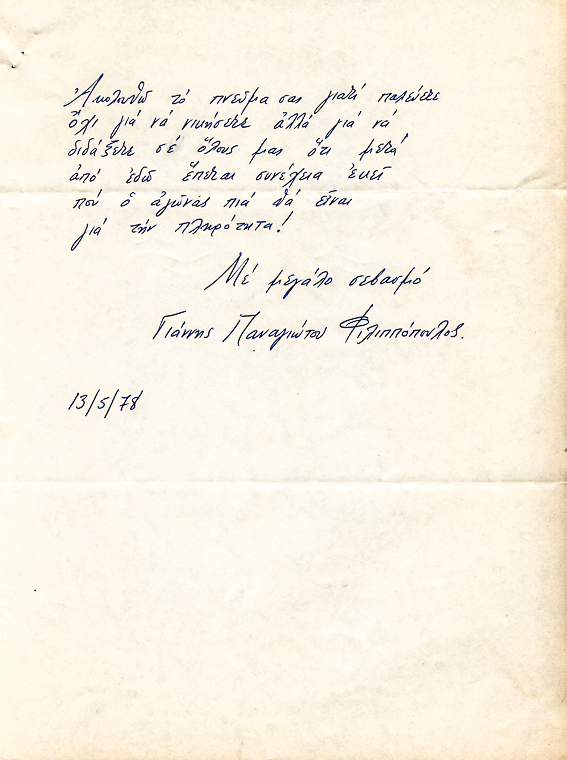 Ἀκολουθῶ τό πνεῦμα σας γιατί παλεύετε
ὄχι γιά νά νικήσετε ἀλλά γιά νά
διδάξετε σέ ὅλους μας ὅτι μετά
ἀπό ἐδῶ ἕπεται συνέχεια ἐκεῖ
πού ὁ ἀγώνας πιά θά εἶναι
γιά τήν πληρότητα!
Μέ μεγάλο σεβασμό
Γιάννης Παναγιώτου Φιλιππόπουλος.
13/5/78